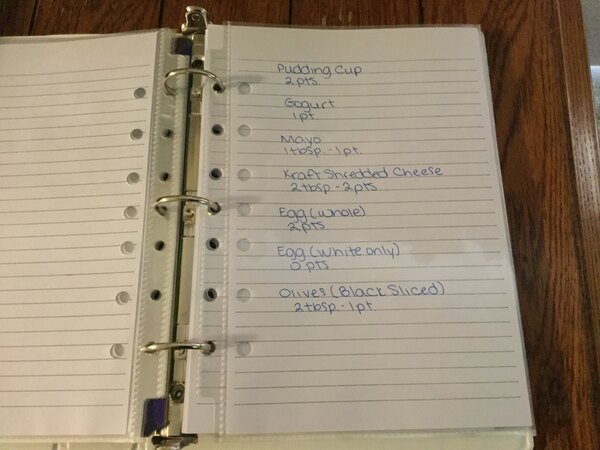 Pudding Cup
2pts.
Gogurt
1pt.
Mayo
1tbsp.-1pt.
Kraft Shredded Cheese
2tbsp.-2pts
Egg (Whole)
2pts.
Egg (White only)
0pts
Olives (Black Sliced)
2tbsp.-1pt.